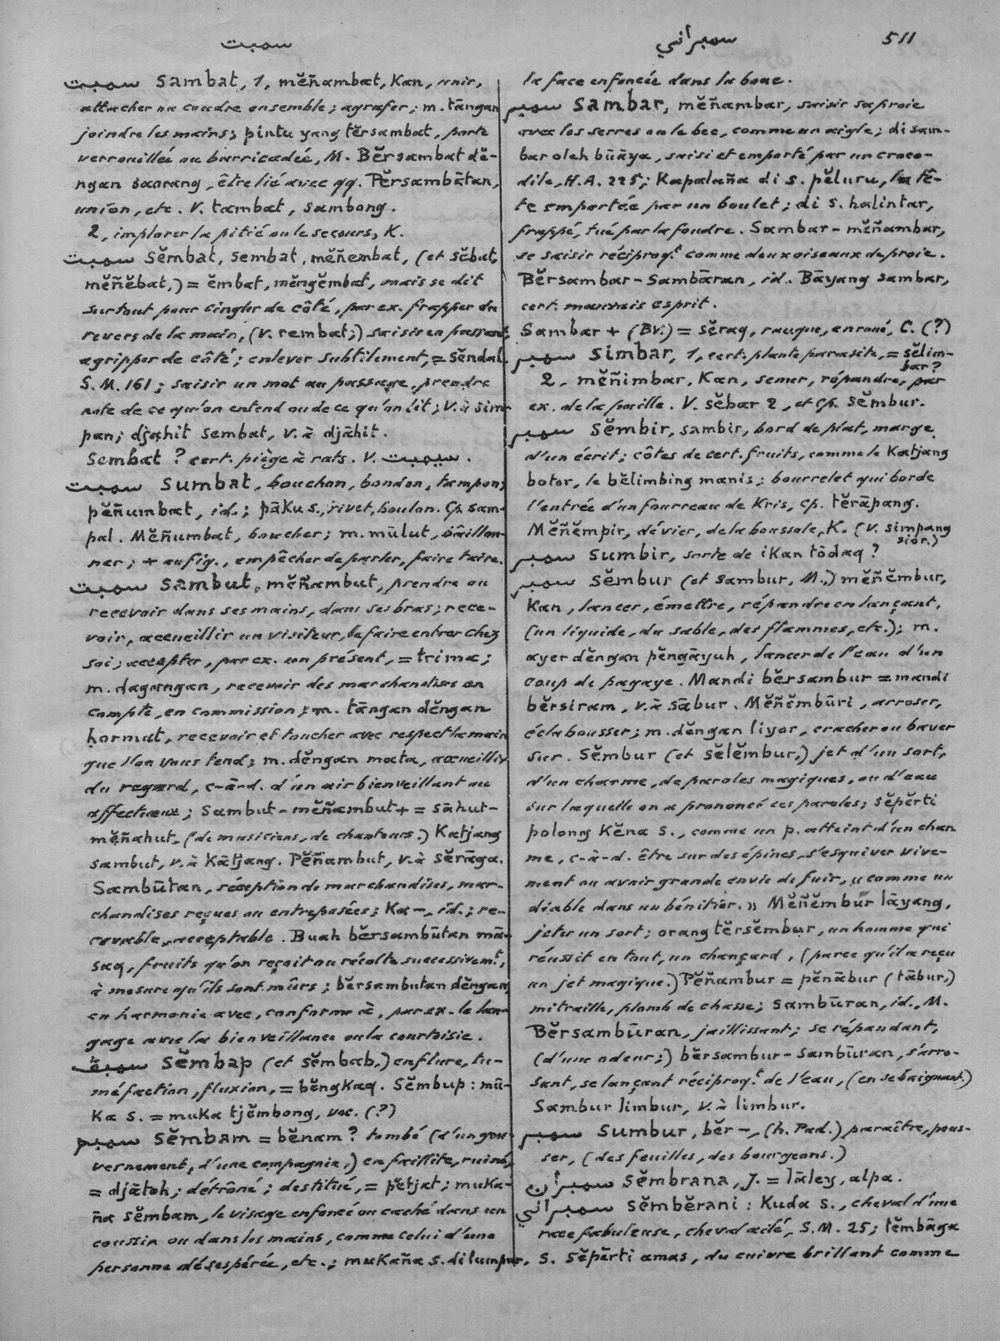 سمبت سمبراني 511
سمبت sambat, 1, mĕñambat, kan, unir,
attacher ou coudre ensemble; agrafer; m. tāngan
joindre les mains; pintu yang tĕrsambat, porte
verrouillée ou barricadée, M. Bĕrsambat dĕ-
ngan saorang, être lié avec qq. Pĕrsambātan,
union, etc. V. tambat, sambong.
2, implorer la pitié ou le secours, K.
سمبت Sĕmbat, sembat, mĕñembat, (et sĕbat,
mĕñĕbat,) = ĕmbat, mĕngĕmbat, mais se dit
surtout pour cingler de côté, par ex. frapper du
revers de la main, (v. rembat;) saisir en passant
agripper de côté; enlever subtilement, = sĕndal
S.M. 161; saisir un mot au passage, prendre
note de ce qu'on entend ou de ce qu'on lit; v. à sim-
pan; djahit sembat, v. à djāhit.
Sembat ? cert. piège à rats. V. سيمبت.
سمبت sumbat, bouchon, bondon, tampon;
pĕñumbat, id.; pāku s., rivet, boulon. Cp. sam-
pal. Mĕñumbat, boucher; m. mūlut, bâillon-
ner; + au fig., empêcher de parler, faire taire.
سمبت sambut, mĕñambut, prendre ou
recevoir dans ses mains, dans ses bras; rece-
voir, accueillir un visiteur, le faire entrer chez
soi; accepter, par ex. un présent, = trima;
m. dagangan, recevoir des marchandises en
compte, en commission; m. tāngan dĕngan
hormat, recevoir et toucher avec respect la main
que l'on vous tend; m. dĕngan mata, accueillir
du regard, c-à-d. d'un air bienveillant ou
affectueux; Sambut-mĕñambut + = sāhut-
mĕñahut, (de musiciens, de chanteurs.) Katjang
sambut, v. à Kātjang. Pĕñambut, v. à sĕrāga.
Sambūtan, réception de marchandises, mar-
chandises reçues ou entreposées; Ka-, id.; re-
cevable, acceptable. Buah bĕrsambūtan mā-
saq, fruits qu'on reçoit ou récolte successivemt,
à mesure qu'ils sont mûrs; bĕrsambutan dĕngan
en harmonie avec, conforme à, par ex. le lan-
gage avec la bienveillance ou la courtoisie.
Sĕmbap (et sĕmbab,) enflure, tu-
méfaction, fluxion, = bĕngkaq. Sĕmbup: mū-
ka s. = muka tjĕmbong, voc. (?)
سمبم sĕmbam = bĕnam ? tombé (d'un gou-
vernement, d'une compagnie,) en faillite, ruiné,
= djātoh; détrôné; destitué, = pĕtjat; muka-
ña sĕmbam, le visage enfoncé ou caché dans un
coussin ou dans les mains, comme celui d'une
personne désespérée, etc.; mukaña s. di lumpur,
la face enfoncée dans la boue.
سمبر Sambar, mĕñambar, saisir sa proie
avec les serres ou le bec, comme un aigle; di sam-
bar oleh būāya, saisi et emporté par un croco-
dile, H.A. 225; Kapalaña di s. pĕluru, la tê-
te emportée par un boulet; di s. halintar,
frappé, tué par la foudre. Sambar-mĕñambar,
se saisir réciproqt comme deux oiseaux de proie.
Bĕrsambar-Sambāran, id. Bāyang sambar,
cert. mauvais esprit.
Sambar + (Bv.) = sĕraq, rauque, enroué, C. (?)
سمبر simbar, 1, cert. plante parasite, = sĕlim-
bar?
2, mĕñimbar, kan, semer, répandre, par
ex. de la paille. V. sĕbar 2, et cp. sĕmbur.
سمبر sĕmbir, sambir, bord de plat, marge
d'un écrit; côtes de cert. fruits, comme le Katjang
botor, le bĕlimbing manis; bourrelet qui borde
l'entrée d'un fourreau de Kris, cp. tĕrāpang.
Mĕñĕmpir, dévier, de la boussole, K. (v. simpang
sior.)
سمبر sumbir, sorte de ikan tōdaq ?
سمبر sĕmbur (et sambur, M.,) mĕñĕmbur,
kan, lancer, émettre, répandre en lançant,
(un liquide, du sable, des flammes, etc.); m.
ayer dĕngan pĕngāyuh, lancer de l'eau d'un
coup de pagaye. Mandi bĕrsambur = mandi
bĕrsiram, v. à sābur. Mĕñĕmbūri, arroser,
éclabousser; m. dĕngan liyor, cracher ou baver
sur. Sĕmbur (et sĕlĕmbur,) jet d'un sort,
d'un charme, de paroles magiques, ou d'eau
sur laquelle on a prononcé ces paroles; sĕpĕrti
polong kĕna s., comme un p. atteint d'un char-
me, c-à-d. être sur des épines, s'esquiver vive-
ment ou avoir grande envie de fuir, « comme un
diable dans un bénitier. » Mĕñĕmbur lāyang,
jeter un sort; orang tĕrsĕmbur, un homme qui
réussit en tout, un chançard, (parce qu'il a reçu
un jet magique.) Pĕñambur = pĕnābur (tābur,)
mitraille, plomb de chasse; sambūran, id., M.
Bĕrsambūran, jaillissant; se répandant,
(d'une odeur;) bĕrsambur-sambūran, s'arro-
sant, se lançant réciproqt de l'eau, (en se baignant.)
Sambur limbur, v. à limbur.
سمبر Sumbur, bĕr-, (h. Pad.) paraître, pous-
ser, (des feuilles, des bourgeons.)
سمبران Sĕmbrana, J. = lāley, alpa.
سمبراني sĕmbĕrani: Kuda s., cheval d'une
race fabuleuse, cheval ailé, S.M. 25; tĕmbāga
s. sĕpĕrti amas, du cuivre brillant comme